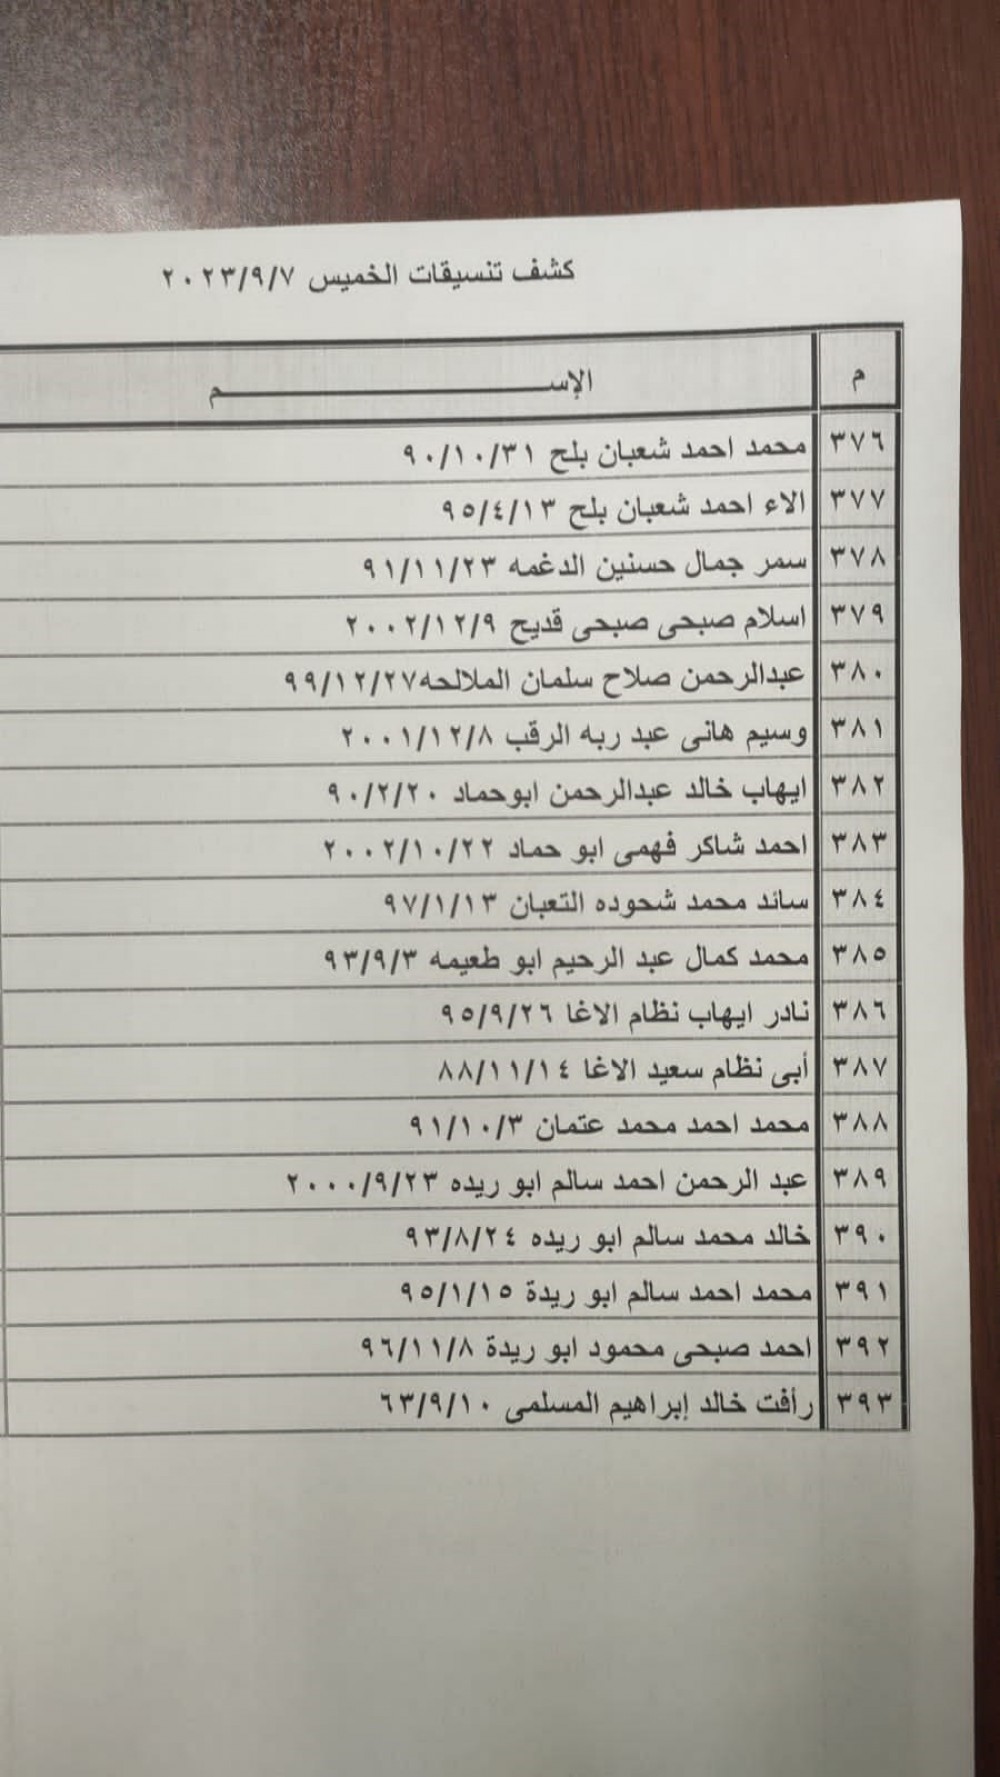 كشف تنسيقات الخميس ٢٠٢٣/٩/٧
م الإســـــــــــــــــــــــــــــم
٣٧٦ محمد احمد شعبان بلح ٩٠/١٠/٣١
٣٧٧ الاء احمد شعبان بلح ٩٥/٤/١٣
٣٧٨ سمر جمال حسنين الدغمه ٩١/١١/٢٣
٣٧٩ اسلام صبحى صبحى قديح ٢٠٠٢/١٢/٩
٣٨٠ عبدالرحمن صلاح سلمان الملالحه٩٩/١٢/٢٧
٣٨١ وسيم هانى عبد ربه الرقب ٢٠٠١/١٢/٨
٣٨٢ ايهاب خالد عبدالرحمن ابوحماد ٩٠/٢/٢٠
٣٨٣ احمد شاكر فهمى ابو حماد ٢٠٠٢/١٠/٢٢
٣٨٤ سائد محمد شحوده التعبان ٩٧/١/١٣
٣٨٥ محمد كمال عبد الرحيم ابو طعيمه ٩٣/٩/٣
٣٨٦ نادر ايهاب نظام الاغا ٩٥/٩/٢٦
٣٨٧ أبى نظام سعيد الاغا ٨٨/١١/١٤
٣٨٨ محمد احمد محمد عتمان ٩١/١٠/٣
٣٨٩ عبد الرحمن احمد سالم ابو ريده ٢٠٠٠/٩/٢٣
٣٩٠ خالد محمد سالم ابو ريده ٩٣/٨/٢٤
٣٩١ محمد احمد سالم ابو ريدة ٩٥/١/١٥
٣٩٢ احمد صبحى محمود ابو ريدة ٩٦/١١/٨
٣٩٣ رأفت خالد إبراهيم المسلمى ٦٣/٩/١٠